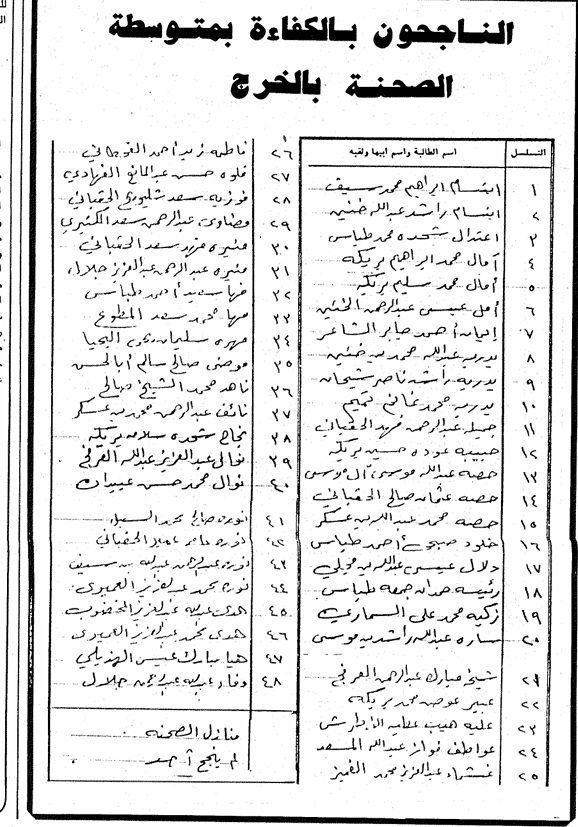 الناجحون بالكفاءة بمتوسطة
الصحنة بالخرج
التسلسل اسم الطالبة واسم ابيها ولقبه
١ ابتسام ابراهيم محمد سيف
٢ ابتسام راشد عبدالله خنين
٣ اعتدال شحده محمد طباسي
٤ آمال حمد ابراهيم بريكه
٥ آمال محمد سليم بريكه
٦ أمل عيسى عبدالرحمن الخنين
٧ إيمان أحمد صابر الشاعر
٨ بدريه عبدالله حمد بن خنين
٩ بدريه راشد ناصر شيحان
١٠ بدريه محمد غانم تميم
١١ جميله عبدالرحمن فهد الحقباني
١٢ حبيبه عوده حسين بريكه
١٣ حصه عبدالله موسى آل موسى
١٤ حصه عثمان صالح الحقباني
١٥ حصه محمد عبدالله بن عسكر
١٦ خلود صبحي أحمد طباسي
١٧ دلال عيسى عبدالله بن
١٨ رئيسه حمدان جمعه طباسي
١٩ زكيه محمد علي
٢٠ ساره عبدالله راشد بن موسى
٢١ شيخه مبارك عبدالرحمن العرفج
٢٢ عبير عوض محمد بريكه
٢٣ عليه
٢٤ عواطف فواز عبدالله المسعد
٢٥ عبدالعزيز محمد
٢٦ فاطمه زيد أحمد
٢٧ قلوه حسن عبدالمانع الفهادي
٢٨ فوزيه سعد شليويح الحقباني
٢٩ مضاوي عبدالرحمن سعد الكثيري
٣٠ منيره فهد سعد الحقباني
٣١ منيره عبدالرحمن عبدالعزيز جلال
٣٢ مها سعيد أحمد طباسي
٣٣ مها محمد سعد المطوع
٣٤ مهره سليمان يحيى اليحيا
٣٥ موضي صالح سالم أبالحسن
٣٦ ناهد محمد الشيخ صالح
٣٧ نائف عبدالرحمن محمد بن عسكر
٣٨ نجاح شحده سلامه بريكه
٣٩ عبدالعزيز عبدالله العرفج
٤٠ نوال محمد حسن عبيدان
٤١ نوره صالح محمد
٤٢ نوره عامر الحقباني
٤٣ نوره عبدالرحمن عبدالله بن سيف
٤٤ نوره محمد عبدالعزيز العميري
٤٥ هدى عبدالله عبدالعزيز المخضوب
٤٦ هدى محمد عبدالعزيز العميري
٤٧ هيا مبارك عيسى الهذيلي
٤٨ وفاء عبدالله عبدالرحمن جلال
منازل الصحنه
لم ينجح أحد